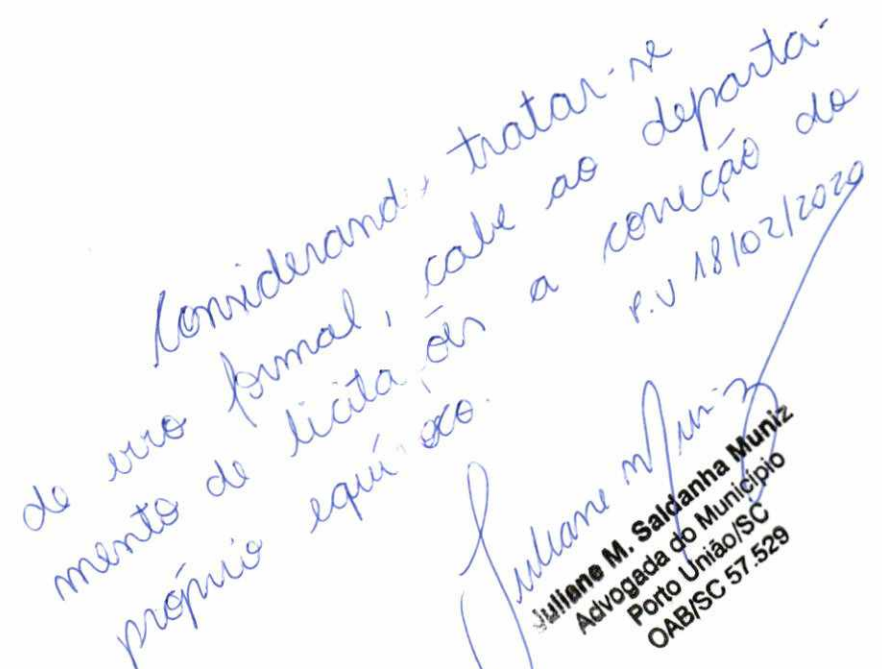 Considerand, tratar-se
de erro formal, cabe ao departa-
mento de licitações a correção do
próprio equívoco.
P.U 18/02/2020
Juliane Muniz
Juliane M. Saldanha Muniz
Advogada do Município
Porto União/SC
OAB/SC 57.529